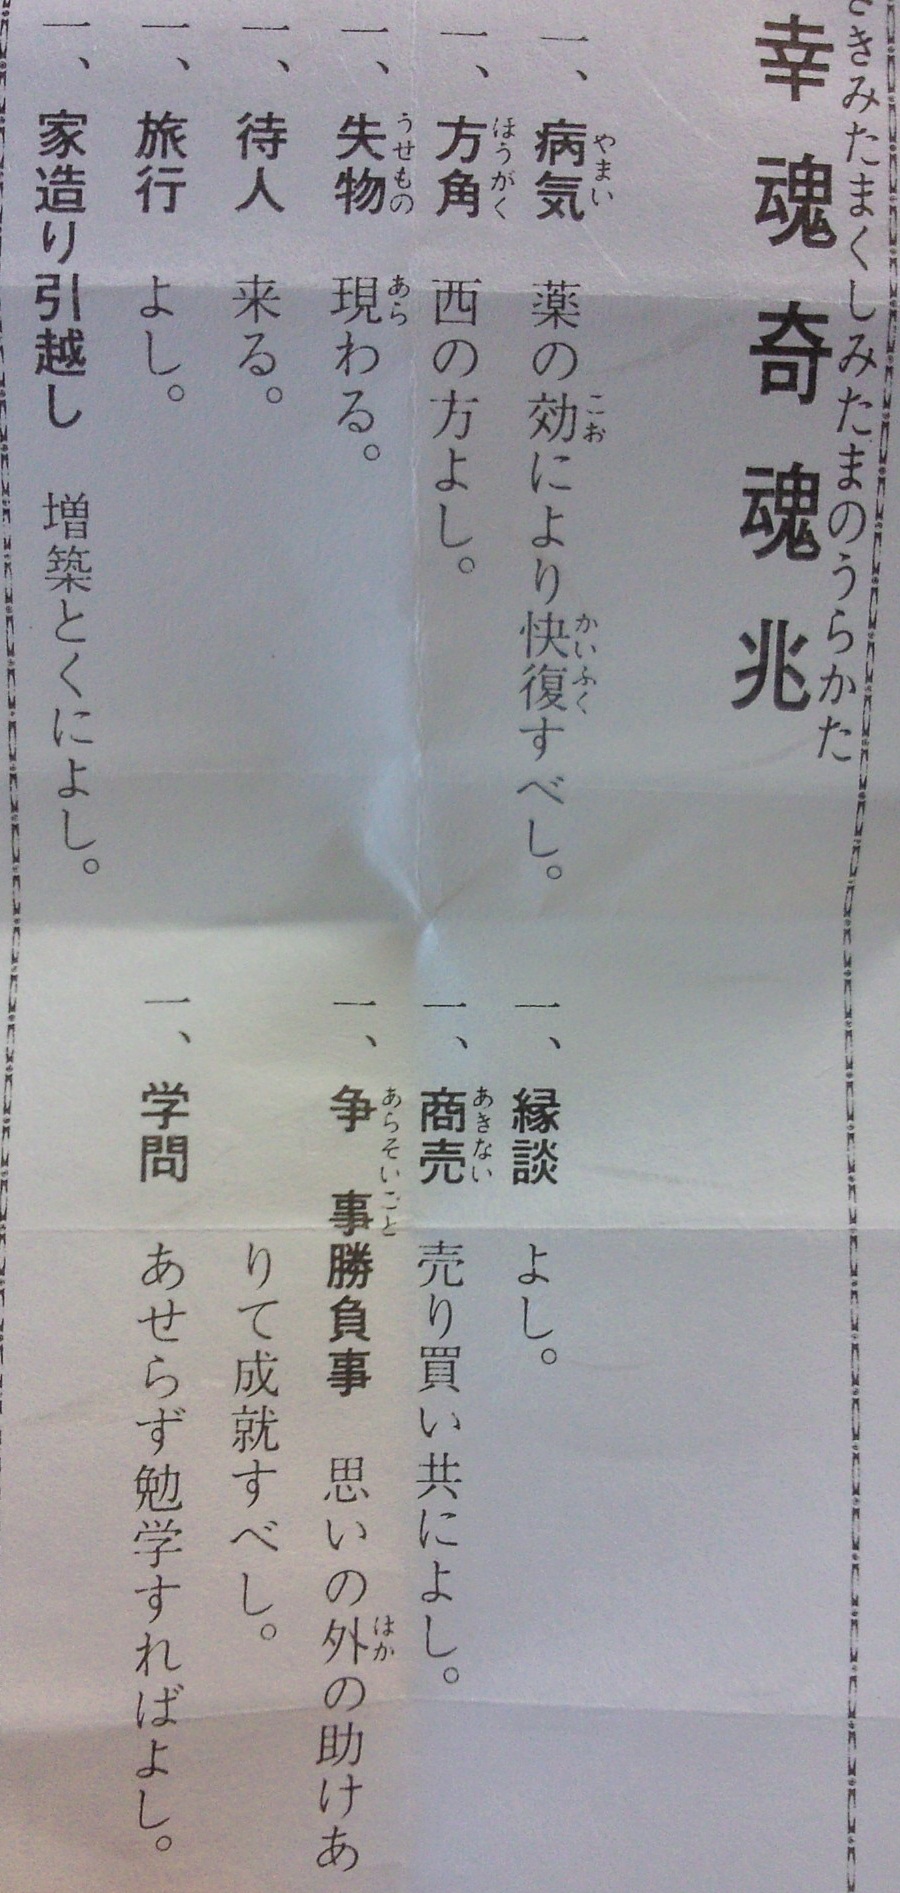 さきみたまくしみたまのうらかた
幸魂奇魂兆
一、病気 薬の効により快復すべし。
やまい こお かいふく
一、方角 西の方よし。
ほうがく
一、失物 現わる。
うせもの あら
一、待人 来る。
一、旅行 よし。
一、家造り引越し 増築とくによし。
一、縁談 よし。
一、商売 売り買い共によし。
あきない
一、争事勝負事 思いの外の助けあ
あらそいごと ほか
りて成就すべし。
一、学問 あせらず勉学すればよし。